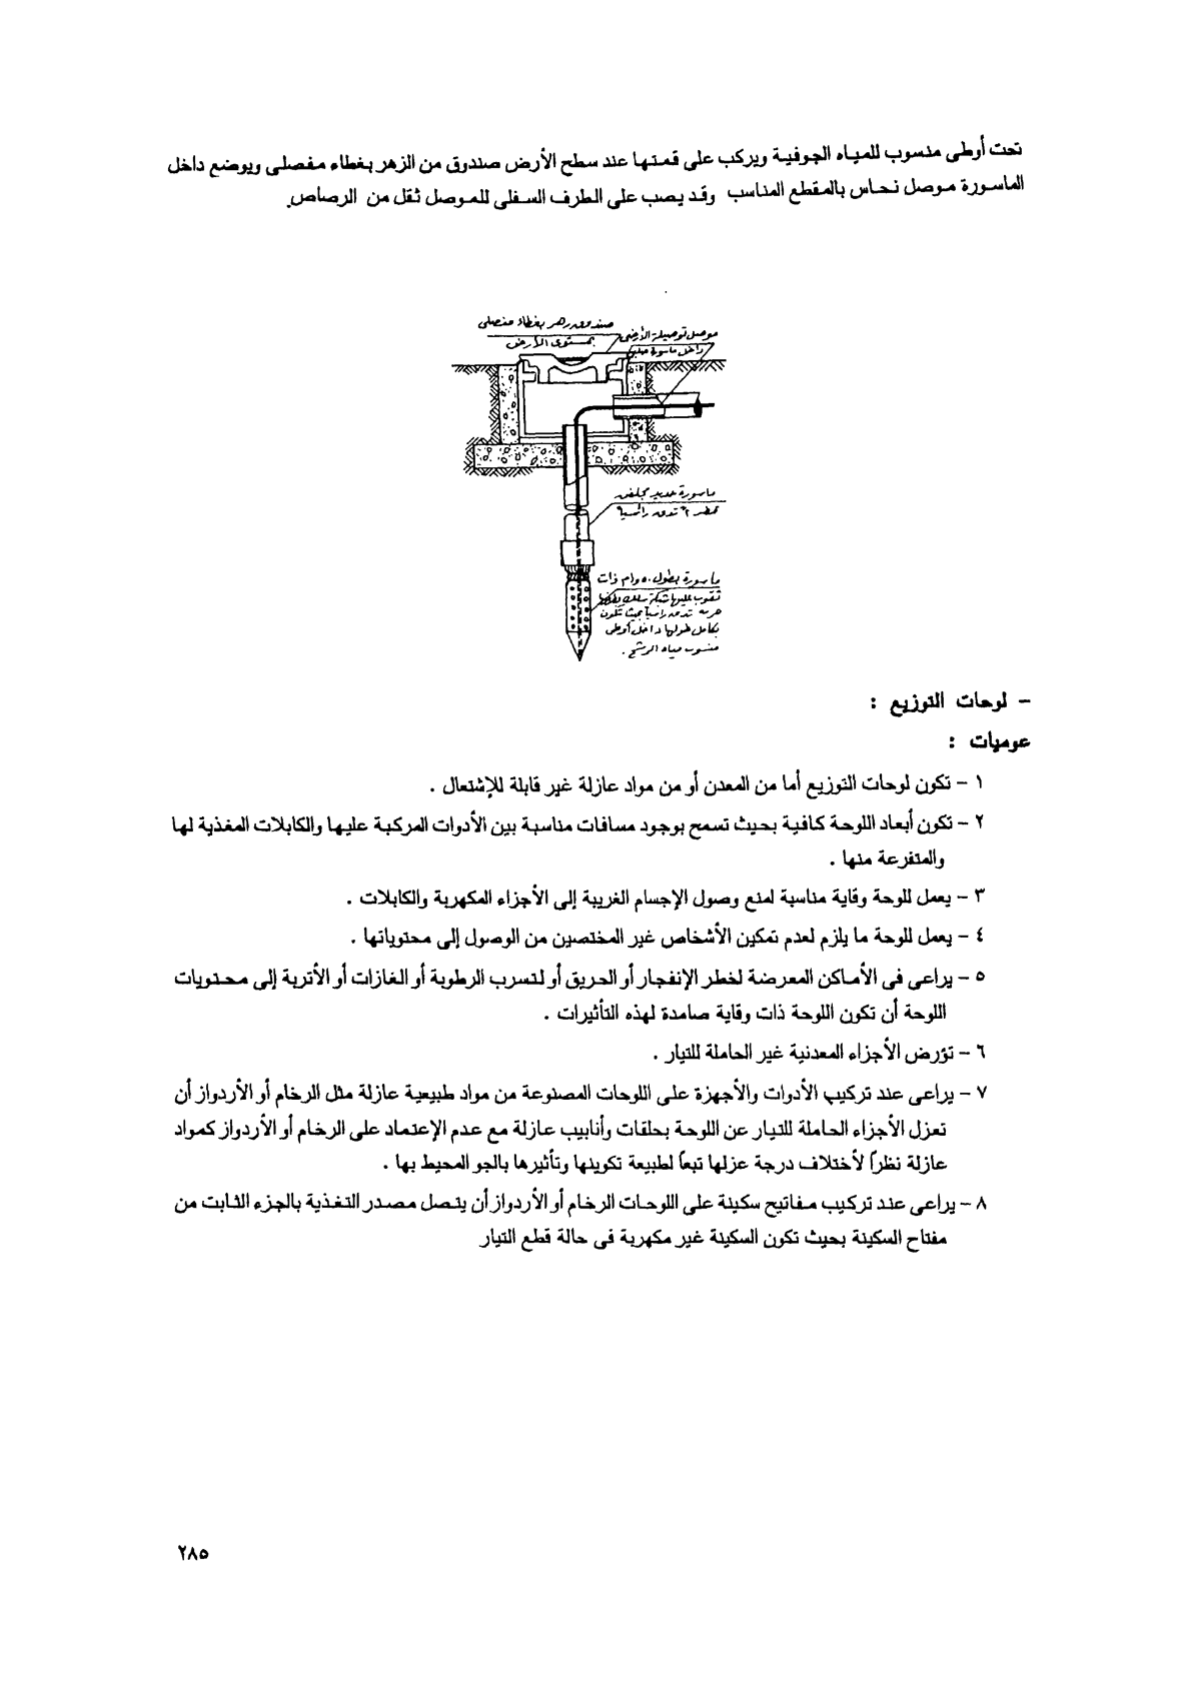 تحت أوطى منسوب للمياه الجوفية ويركب على قمتها عند سطح الأرض صندوق من الزهر بغطاء مفصلى ويوضع داخل
الماسورة موصل نحاس بالمقطع المناسب وقد يصب على الطرف السفلى للموصل ثقل من الرصاص.
صندوق زهر بغطاء مفصلى
بمستوى الأرض
موصل توصيلة الأرضى
داخل ماسورة صلب
ماسورة حديد مجلفن
قطر ٢" تدق رأسياً
ماسورة بطول ١٫٥٠م ذات
ثقوب عليها شبكة سلك
حربه تدق رأسياً بحيث تكون
بكامل طولها داخل أوطى
منسوب مياه الرشح .
– لوحات التوزيع :
عوميات :
١ – تكون لوحات التوزيع أما من المعدن أو من مواد عازلة غير قابلة للإشتعال .
٢ – تكون أبعاد اللوحة كافية بحيث تسمح بوجود مسافات مناسبة بين الأدوات المركبة عليها والكابلات المغذية لها
والمتفرعة منها .
٣ – يعمل للوحة وقاية مناسبة لمنع وصول الإجسام الغريبة إلى الأجزاء المكهربة والكابلات .
٤ – يعمل للوحة ما يلزم لعدم تمكين الأشخاص غير المختصين من الوصول إلى محتوياتها .
٥ – يراعى فى الأماكن المعرضة لخطر الإنفجار أو الحريق أو لتسرب الرطوبة أو الغازات أو الأتربة إلى محتويات
اللوحة أن تكون اللوحة ذات وقاية صامدة لهذه التأثيرات .
٦ – تؤرض الأجزاء المعدنية غير الحاملة للتيار .
٧ – يراعى عند تركيب الأدوات والأجهزة على اللوحات المصنوعة من مواد طبيعية عازلة مثل الرخام أو الأردواز أن
تعزل الأجزاء الحاملة للتيار عن اللوحة بحلقات وأنابيب عازلة مع عدم الإعتماد على الرخام أو الأردواز كمواد
عازلة نظراً لأختلاف درجة عزلها تبعاً لطبيعة تكوينها وتأثيرها بالجو المحيط بها .
٨ – يراعى عند تركيب مفاتيح سكينة على اللوحات الرخام أو الأردواز أن يتصل مصدر التغذية بالجزء الثابت من
مفتاح السكينة بحيث تكون السكينة غير مكهربة فى حالة قطع التيار
٢٨٥